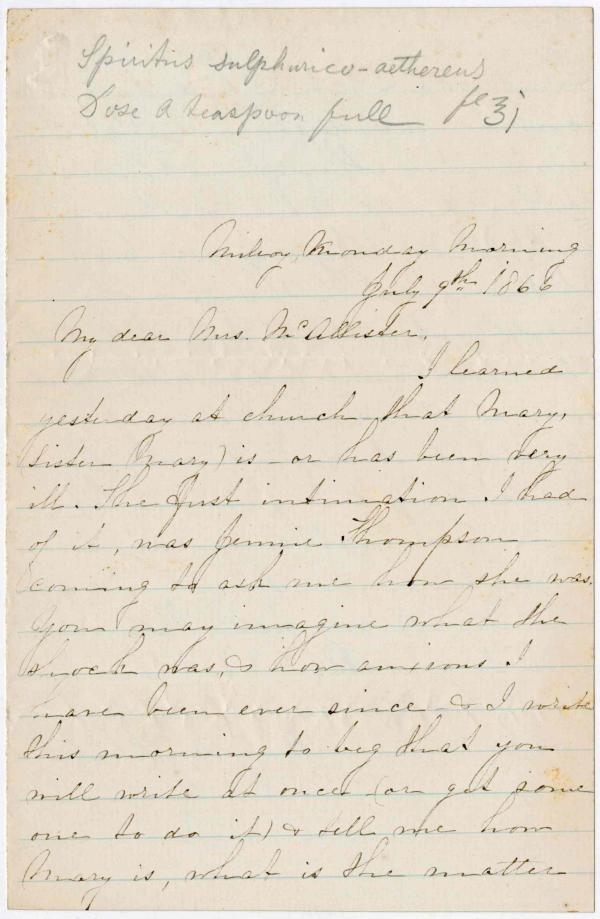 Spiritus sulphurico-aethereus
Dose A teaspoon full fl ʒj
Milroy, Monday Morning
July 9th 1866
My dear Mrs. McAllister,
I learned
yesterday at church that Mary,
(sister Mary) is - or has been very
ill. The first intimation I had
of it, was Jennie Thompson
coming to ask me how she was.
You may imagine what the
shock was, & how anxious I
have been ever since & I write
this morning to beg that you
will write at once (or get some
one to do it) & tell me how
Mary is, what is the matter